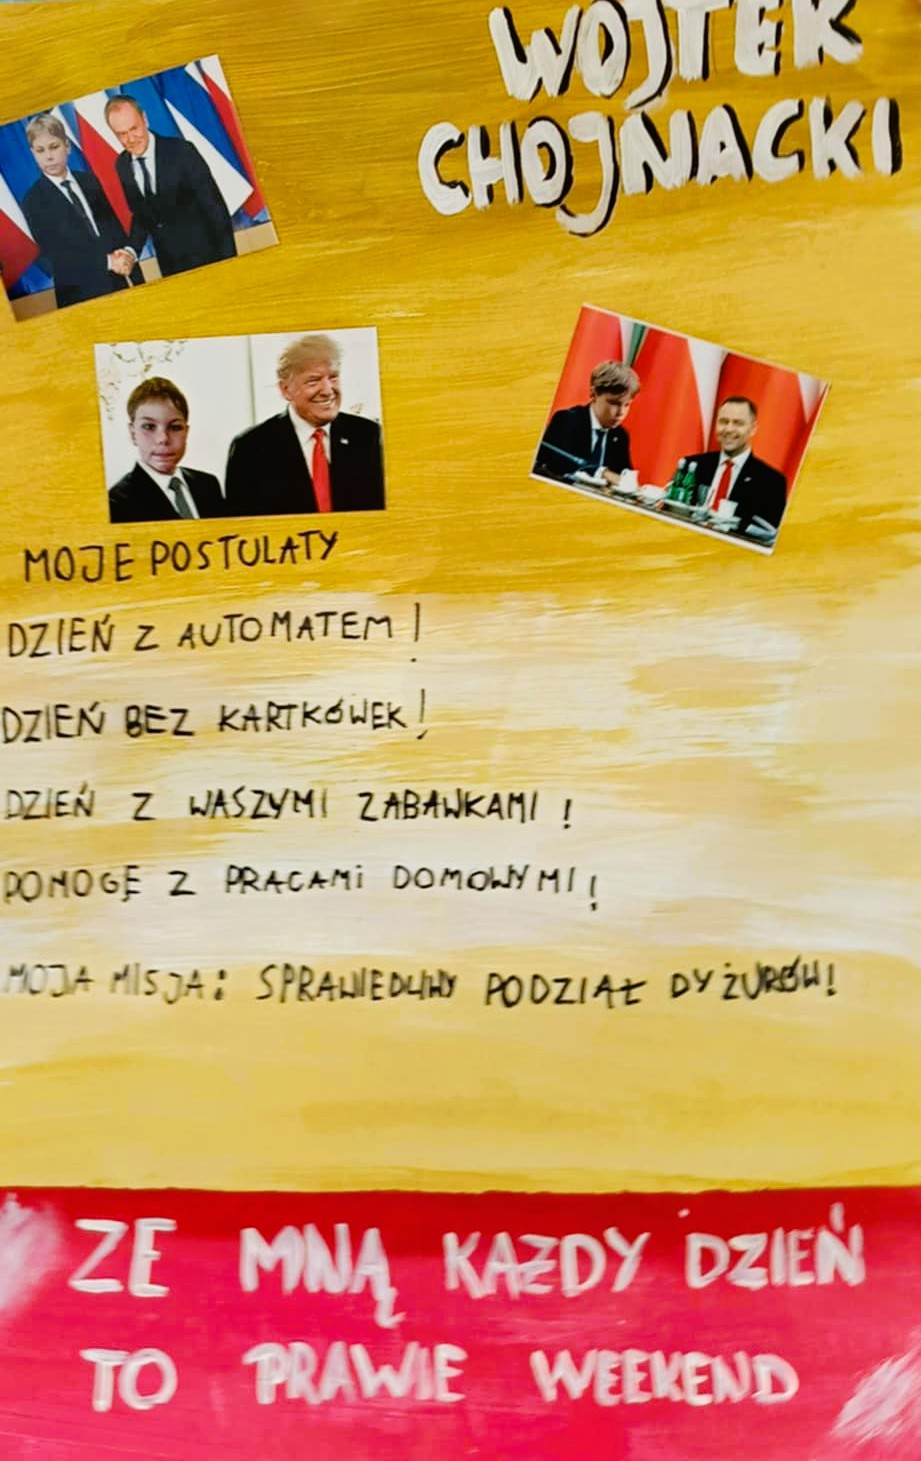 WOJTEK
CHOJNACKI
MOJE POSTULATY
DZIEŃ Z AUTOMATEM!
DZIEŃ BEZ KARTKÓWEK!
DZIEŃ Z WASZYMI ZABAWKAMI!
POMOGĘ Z PRACAMI DOMOWYMI!
MOJA MISJA: SPRAWIEDLIWY PODZIAŁ DYŻURÓW!
ZE MNĄ KAŻDY DZIEŃ
TO PRAWIE WEEKEND